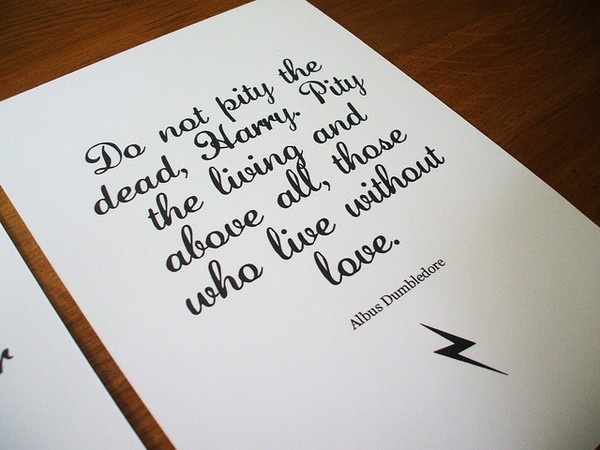 Do not pity the
dead, Harry. Pity
the living and
above all, those
who live without
love.
Albus Dumbledore